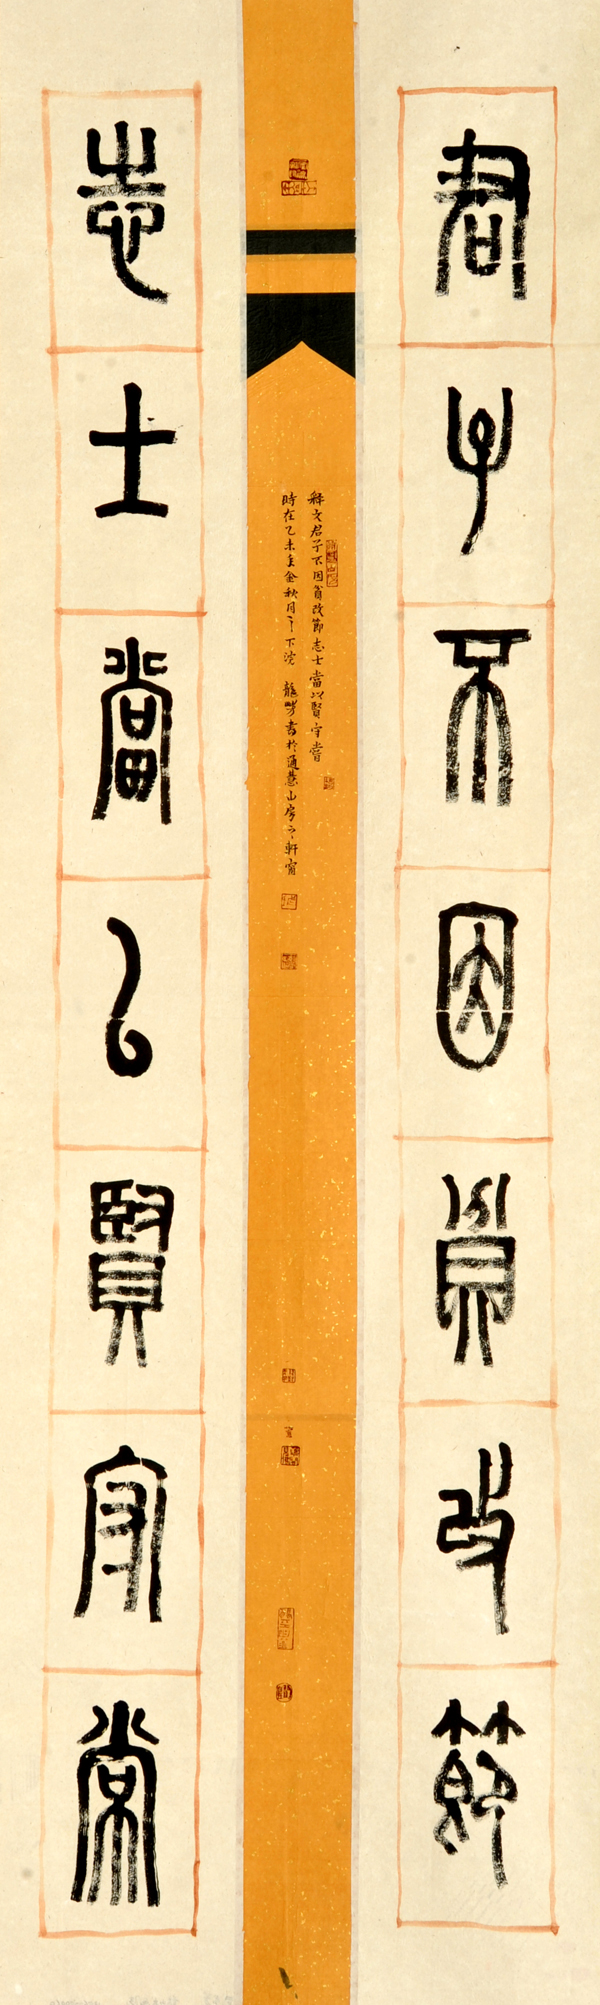 君子不因貧改節
志士當以賢守常
釋文君子不因貧改節志士當以賢守嘗
時在乙未年金秋月之下浣 龍書於通慧山房之軒窗